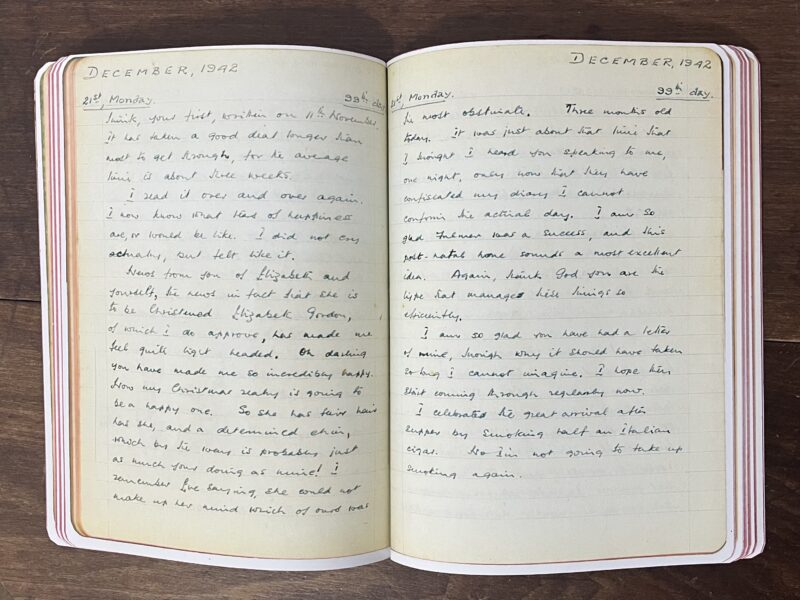 DECEMBER, 1942
21st, Monday. 99th day
think, your first, written on 11th November
It has taken a good deal longer than
most to get through, for the average
time is about three weeks.
I read it over and over again.
I now know what tears of happiness
are, or would be like. I did not cry
actually, but felt like it.
News from you of Elizabeth and
yourself, the news in fact that she is
to be Christened Elizabeth Gordon,
of which I do approve, has made me
feel quite light headed. Oh darling
you have made me so incredibly happy.
Now my Christmas really is going to
be a happy one. So she has fair hair
has she, and a determined chin,
which by the way is probably just
as much your doing as mine! I
remember Eve saying, she could not
make up her mind which of ours was
DECEMBER, 1942
21st, Monday. 99th day.
the most obstinate. Three months old
today. It was just about that time that
I thought I heard you speaking to me,
one night, only now that they have
confiscated my diary I cannot
confirm the actual day. I am so
glad was a success, and this
post-natal home sounds a most excellent
idea. Again, thank God you are the
type that manages these things so
efficiently.
I am so glad you have had a letter
of mine, though why it should have taken
so long I cannot imagine. I hope they
start coming through regularly now.
I celebrated the great arrival after
supper by smoking half an Italian
cigar. No I'm not going to take up
smoking again.